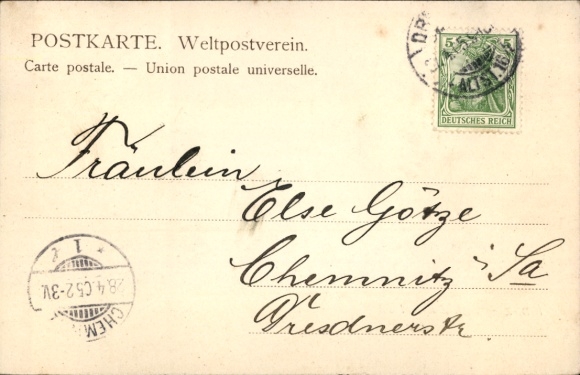 POSTKARTE. Weltpostverein.
Carte postale. — Union postale universelle.
5 5
DEUTSCHES REICH
ALTST. 16
Fräulein
Else Götze
Chemnitz i Sa
Dresdnerstr.
* 1 *
28.4.05 2-3V.
CHEM